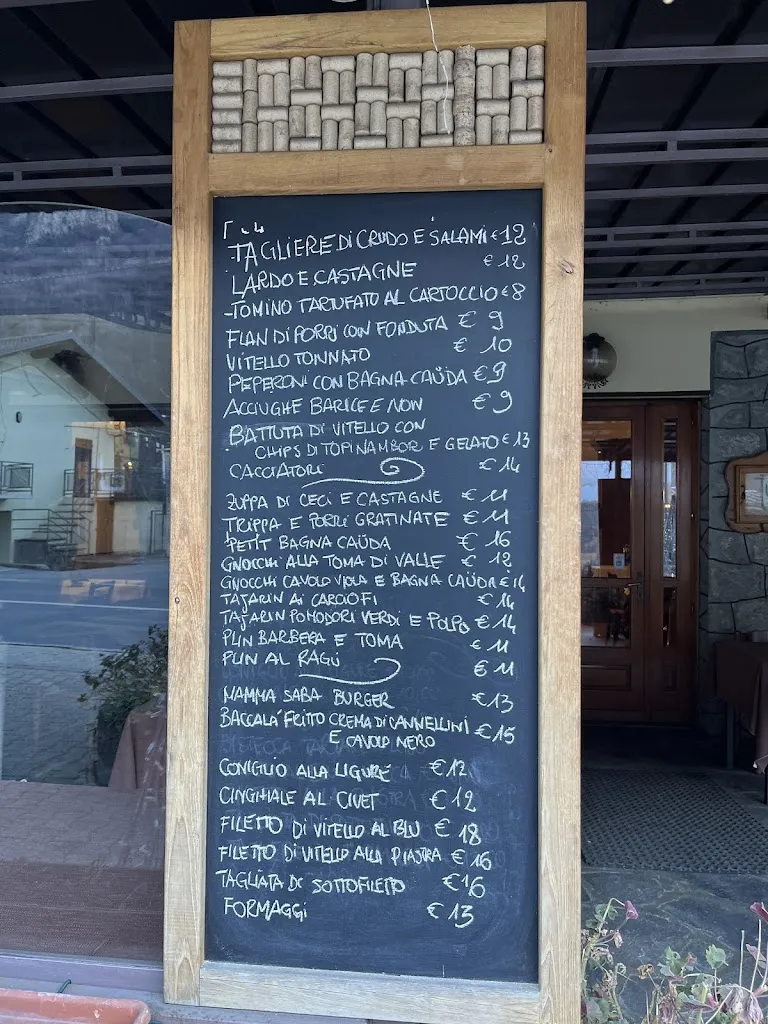 TAGLIERE DI CRUDO E SALAMI €12
LARDO E CASTAGNE € 12
TOMINO TARTUFATO AL CARTOCCIO €8
FLAN DI PORRI CON FONDUTA € 9
VITELLO TONNATO € 10
PEPERONI CON BAGNA CAÜDA €9
ACCIUGHE BARICE E NON €9
BATTUTA DI VITELLO CON
CHIPS DI TOPINAMBOR E GELATO €13
CACCIATORI €14
ZUPPA DI CECI E CASTAGNE €11
TRIPPA E PORRI GRATINATE €11
PETIT BAGNA CAÜDA € 16
GNOCCHI ALLA TOMA DI VALLE € 12
GNOCCHI CAVOLO VIOLA E BAGNA CAÜDA €14
TAJARIN Ai CARCIOFI €14
TAJARIN POMODORI VERDI E POLPO €14
PLIN BARBERA E TOMA €11
PLIN AL RAGÙ €11
MAMMA SABA BURGER €13
BACCALÀ FRITTO CREMA DI CANNELLINI €15
E CAVOLO NERO
CONIGLIO ALLA LIGURE €12
CINGHIALE AL CIVET €12
FILETTO DI VITELLO AL BLU €18
FILETTO DI VITELLO ALLA PIASTRA €16
TAGLIATA DI SOTTOFILETTO €16
FORMAGGi €13